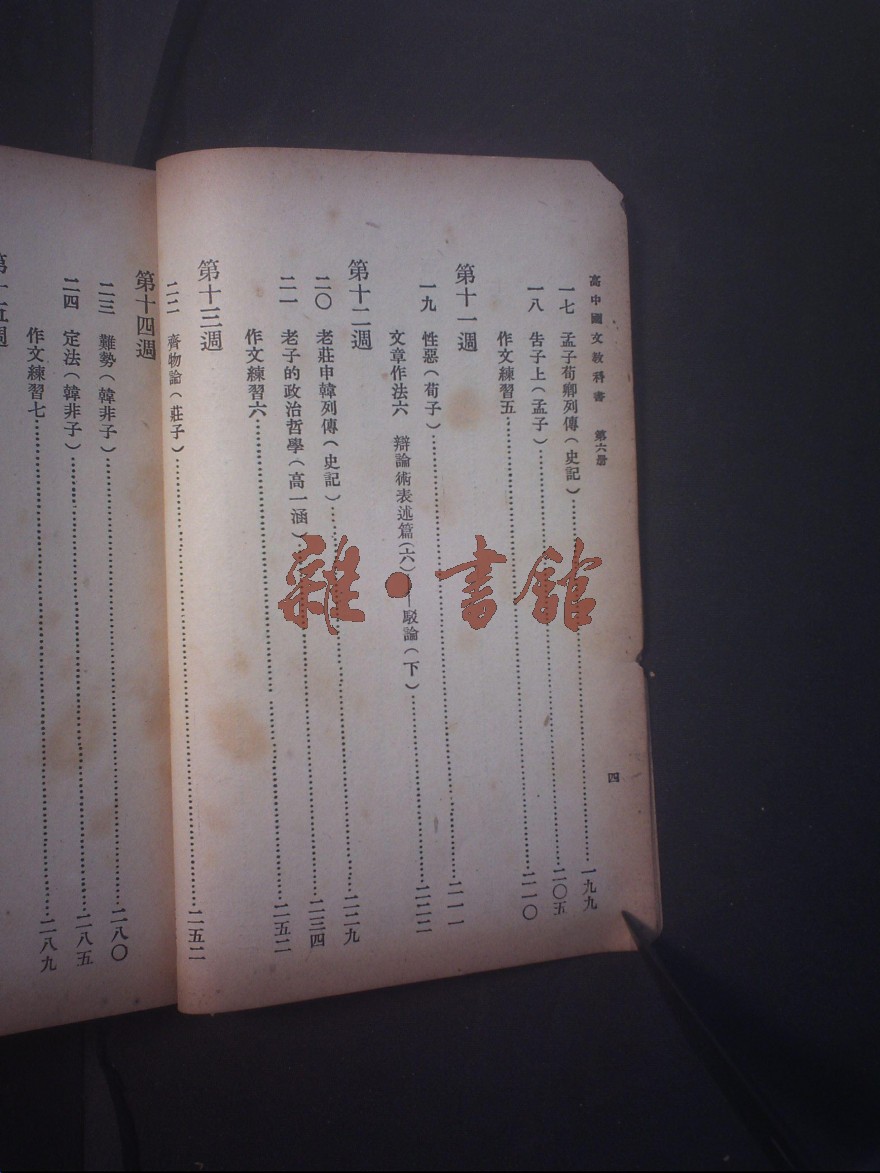 高中國文教科書　第六册　四
一七　孟子荀卿列傳（史記）……一九九
一八　告子上（孟子）……二〇五
作文練習五……二一〇
第十一週
一九　性惡（荀子）……二一一
文章作法六　辯論術表述篇（六）——駁論（下）……二二二
第十二週
二〇　老莊申韓列傳（史記）……二二九
二一　老子的政治哲學（高一涵）……二三四
作文練習六……二五二
第十三週
二二　齊物論（莊子）……二五二
第十四週
二三　難勢（韓非子）……二八〇
二四　定法（韓非子）……二八五
作文練習七……二八九
第十五週
雜•書館